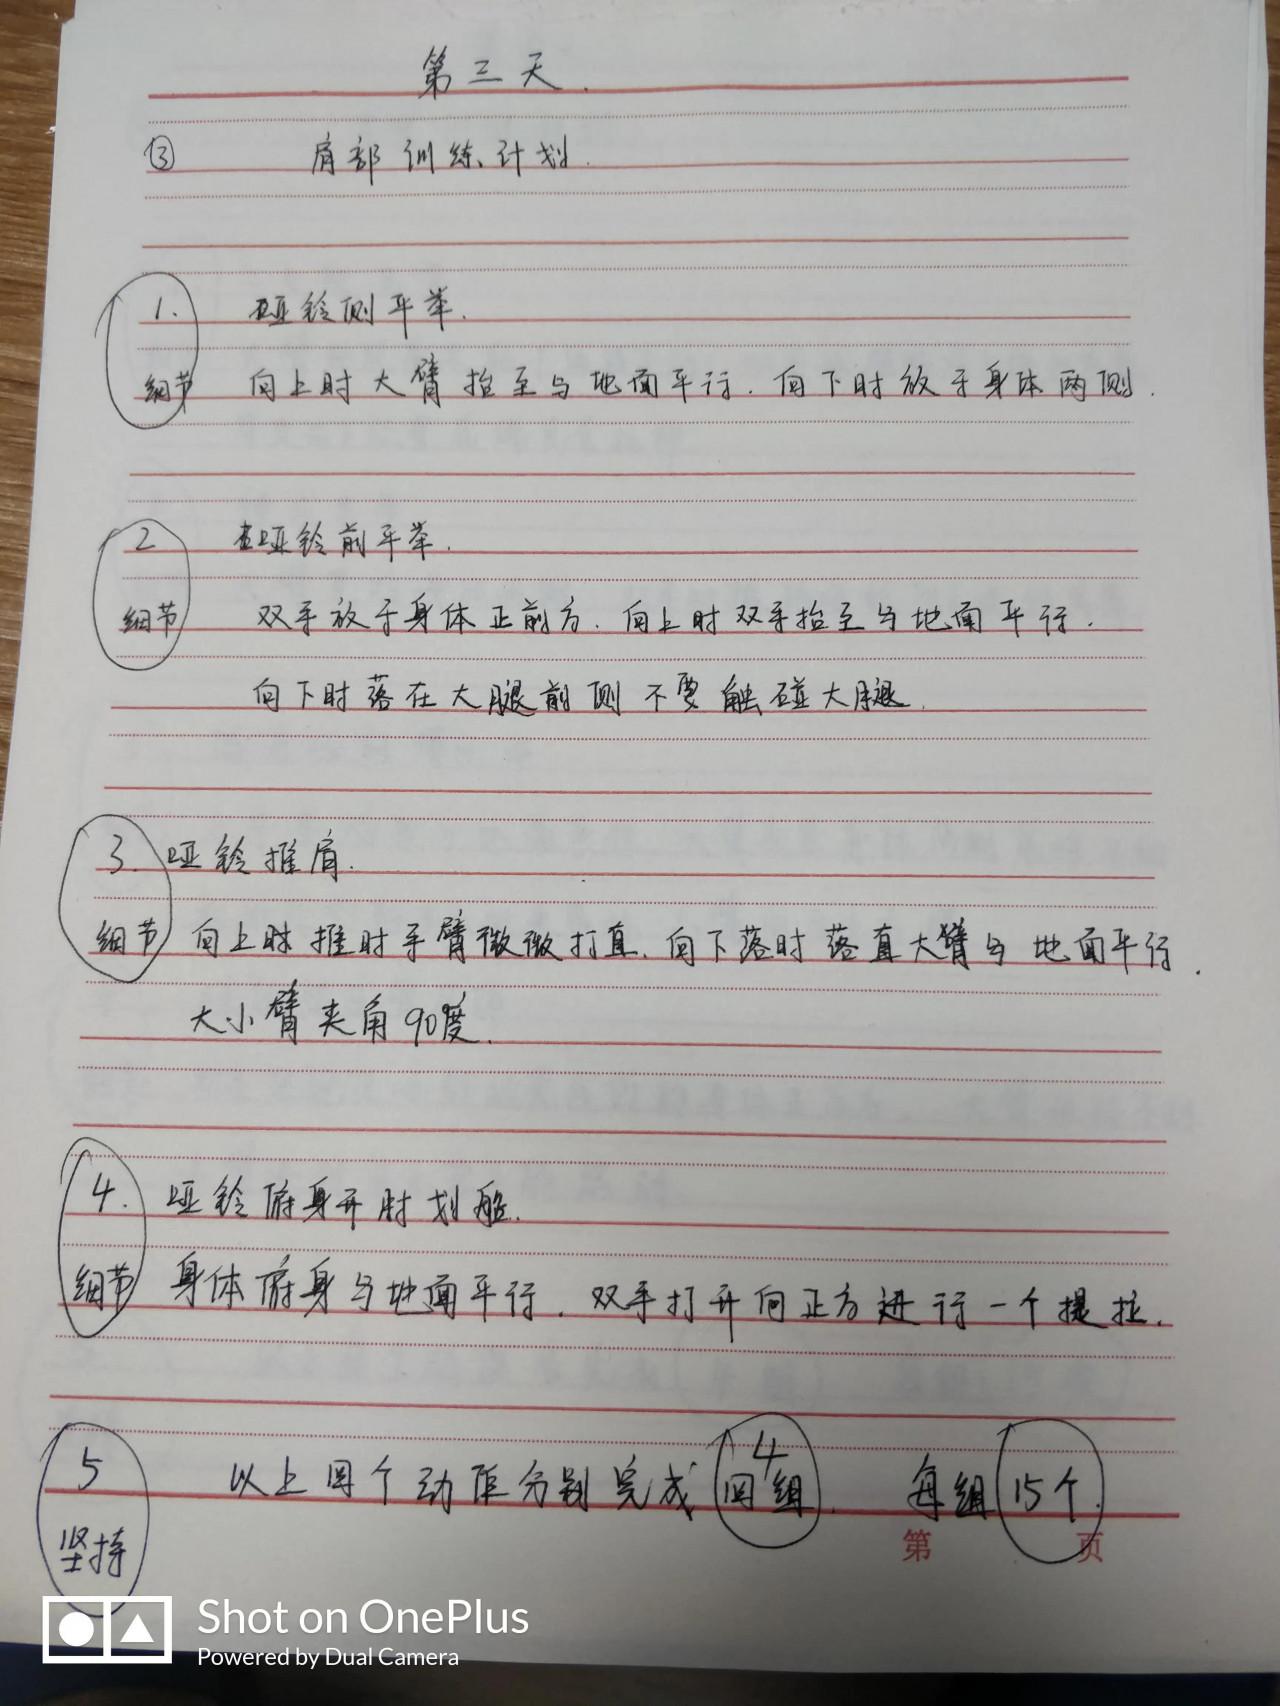 第三天.
③ 肩部训练计划.
1. 哑铃侧平举.
细节 向上时大臂抬至与地面平行.向下时放于身体两侧.
2 哑铃前平举.
细节 双手放于身体正前方.向上时双手抬至与地面平行.
向下时落在大腿前侧不要触碰大腿.
3. 哑铃推肩.
细节 向上时推时手臂微微打直.向下落时落直大臂与地面平行.
大小臂夹角90度.
4. 哑铃俯身开肘划船.
细节 身体俯身与地面平行.双手打开向正方进行一个提拉.
5 以上四个动作分别完成4四组. 每组15个.
坚持
第 页
Shot on OnePlus
Powered by Dual Camera